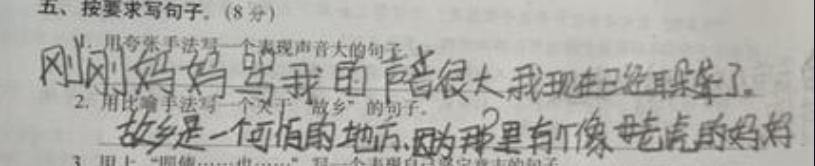 五、按要求写句子。(8分)
1. 用夸张手法写一个表现声音大的句子。
刚刚妈妈骂我的声音很大,我现在已经耳朵聋了。
2. 用比喻手法写一个关于“故乡”的句子。
故乡是一个可怕的地方,因为那里有个像母老虎的妈妈
3. 用上“即使……也……”写一个表现自己坚定意志的句子